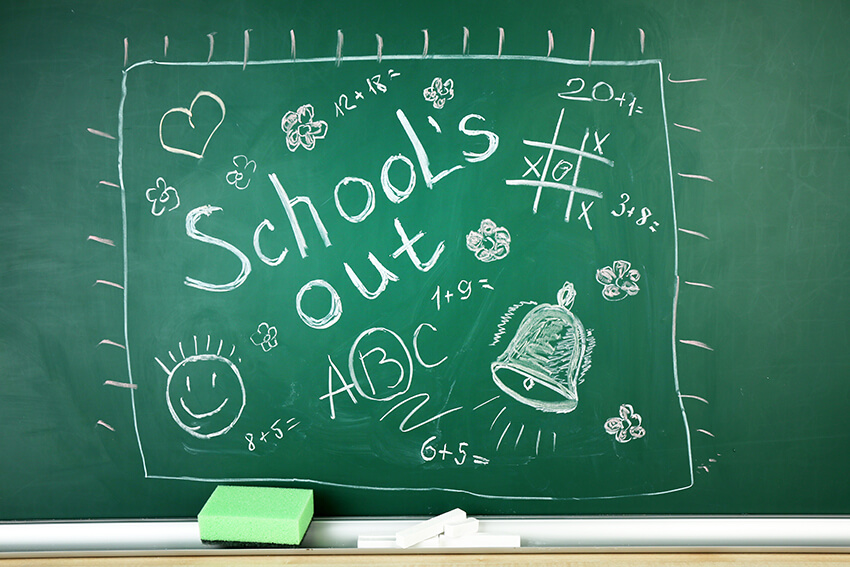 12+18=
20+1=
School's
out
X
X O
X
3+8=
1+9=
ABC
8+5=
6+5=